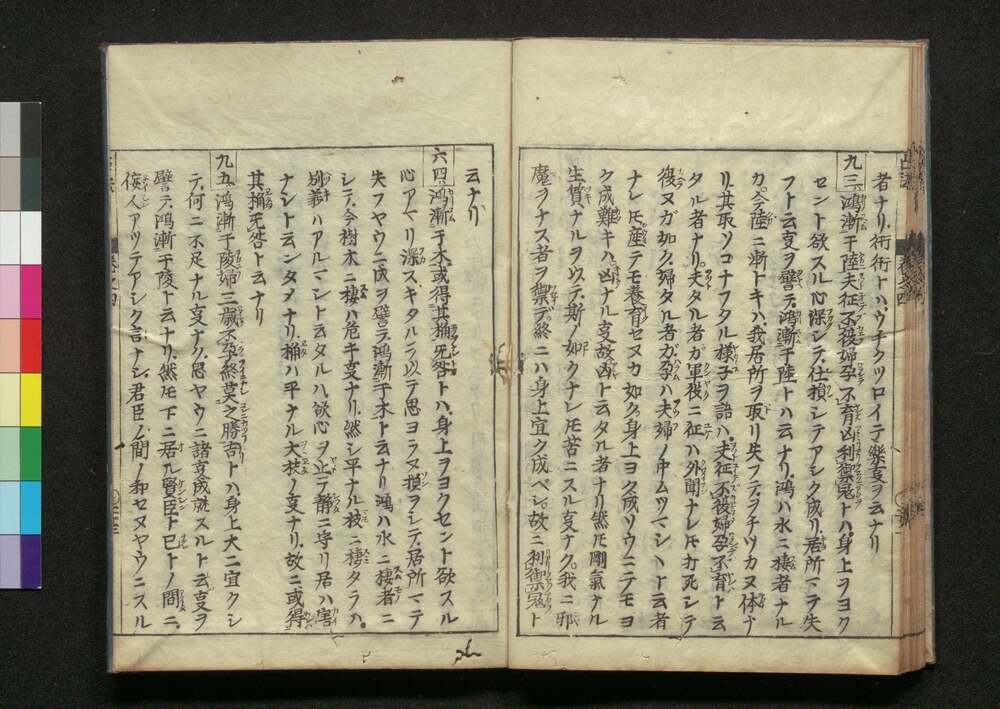 者ナリ、衎衎トハ、ウチクツロイテ楽ヿヲ云ナリ
九三、鴻漸于陸夫征不復婦孕不育凶利禦寇トハ身上ヲヨク
セント欲スル心深シテ、仕損シテアシク成リ、居所マテ失
フト云ヿヲ譬テ、鴻漸于陸トハ云ナリ、鴻ハ水ニ棲者ナル
カ、今陸ニ漸トキハ、我居所ヲ取リ失フテ、ヲチツカヌ体ナ
リ、其取ソコナフタル様子ヲ語ハ、夫征不復婦孕不育ト云
タル者ナリ、夫タル者カ軍役ニ征ハ外聞ナレ𪜈打死シテ
復ヌガ如ク、婦タル者ガ孕ハ夫婦ノ中ムツマシヘト云者
ナレ𪜈、産テモ養育セヌカ如ク、身上ヨク成ソウニテモヨ
ク成難キハ、凶ナルヿ故凶ト云タル者ナリ、然𪜈剛氣ナル
生質ナルヲ以テ、斯ノ如クナレ𪜈苦ニスルヿナク、我ニ邪
魔ヲナス者ヲ禦デ、終ニハ身上宜ク成ベシ、故ニ利禦寇ト
云ナリ
六四、鴻漸于木、或得其桷无咎トハ、身上ヲヨクセント欲スル
心アマリ深スギタルヲ以テ、思ヨラヌ損ヲシテ、居所マテ
失フヤウニ成ヲ譬テ、鴻漸于木ト云ナリ、鴻ハ水ニ棲者ニ
シテ、今樹木ニ棲ハ危キヿナリ、然シ平ナル枝ニ棲タラハ、
別義ハアルマシト云タルハ、欲心ヲ止テ静ニ守リ居ハ害
ナシト云ンタメナリ、桷ハ平ナル大枝ノヿナリ、故ニ或得
其桷无咎ト云ナリ
九五、鴻漸于陵婦三歳不孕終莫之勝吉トハ、身上大ニ宜クシ
テ、何ニ不足ナルヿナク、思ヤウニ諸ヿ成就スルト云ヿヲ
譬テ、鴻漸于陵ト云ナリ、然𪜈下ニ居ル賢臣ト已トノ間ニ、
佞人アツテアシク言ナシ、君臣ノ間ノ和セヌヤウニスル